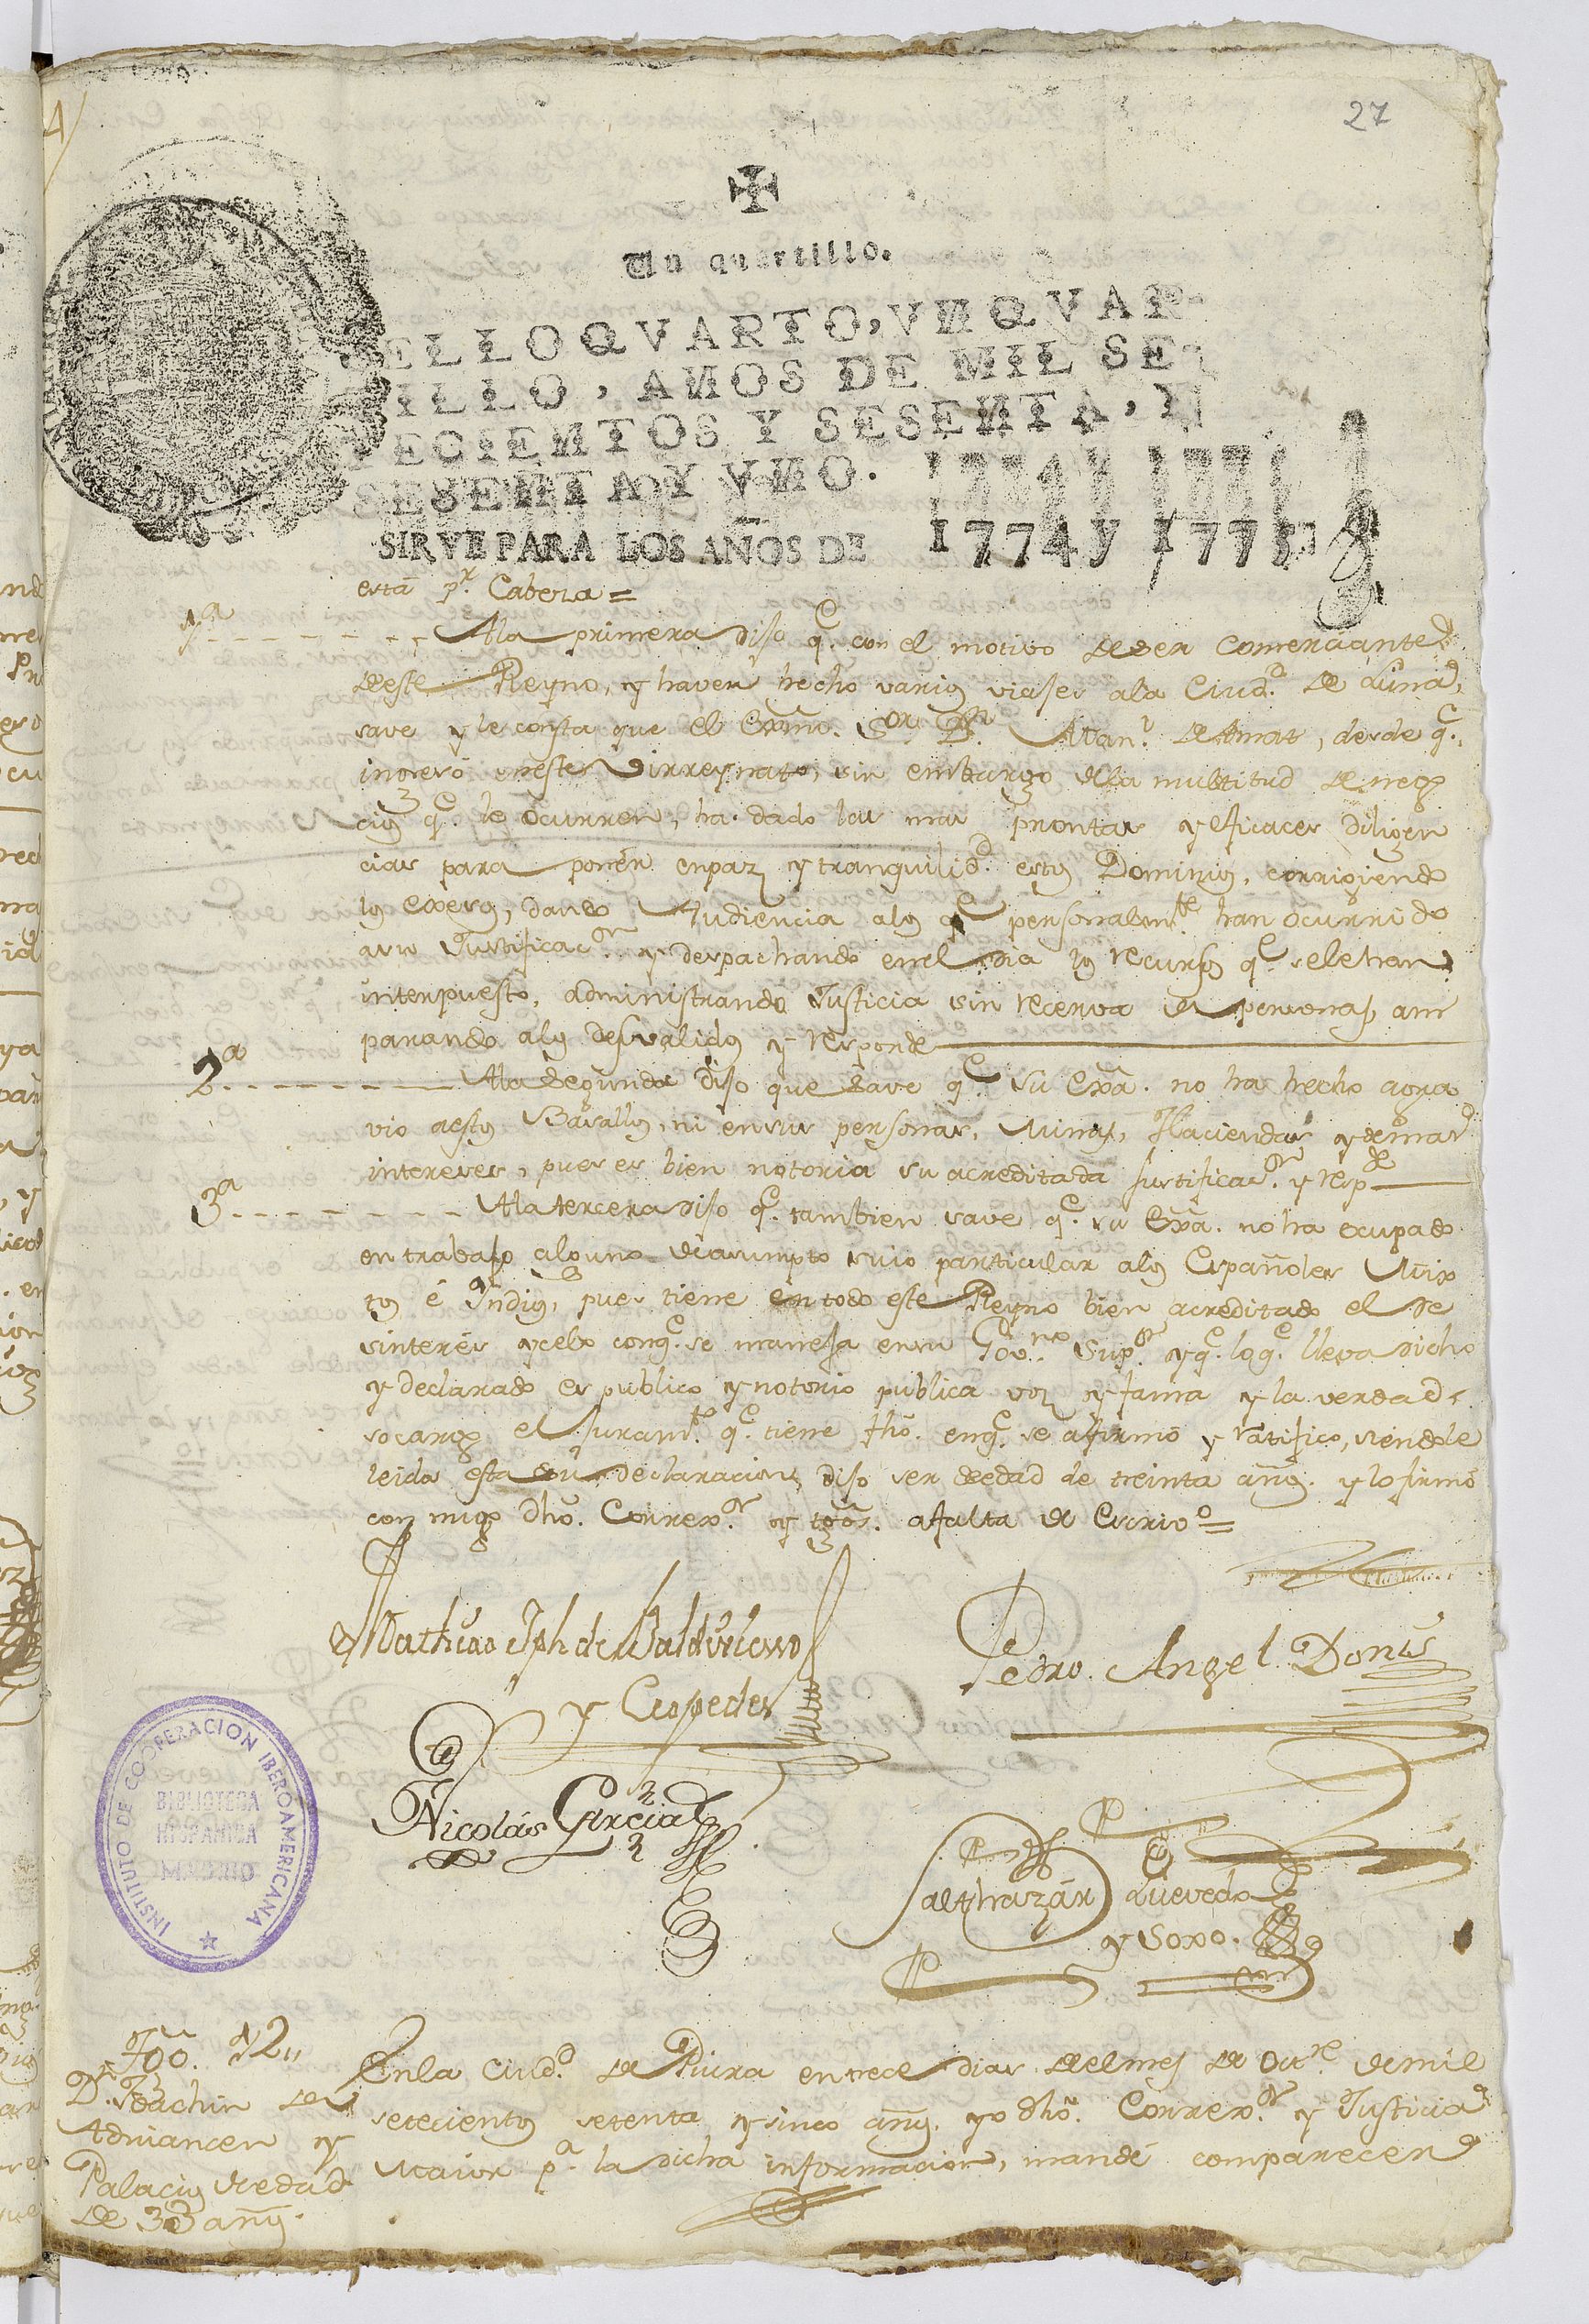 27
Un quartillo.
SELLO QVARTO, VN QVAR-
TILLO, AÑOS DE MIL SE-
TECIENTOS Y SESENTA, Y
SESENTA Y VNO. 1774 y 1775
SIRVE PARA LOS AÑOS DE 1774 y 1775
esta pr. Cabeza =
1a - - - - - - Ala primera dijo qe. con el motivo de ser comerciante
de este Reyno, y haver hecho varios viajes ala Ciudd. de Lima,
save y le consta que el Exmo. Sor. Dn. Manl. de Amat, desde qe.
ingresó en este Virreynato, sin embargo de la multitud de nego
cios qe. le ocurren, ha dado las mas promtas y eficaces diligen
cias para poner en paz y tranquilidd. estos Dominios, corrigiendo
los exesos, dando Audiencia alos qe personalmte. han ocurrido
asu Justificacon. y despachando en el dia los recursos qe. se le han
interpuesto, administrando Justicia sin recerva de personas, am
parando alos desvalidos y responde
2a - - - - - - Ala segunda dijo que save qe su Exa. no ha hecho agra
vio aestos Basallos, ni en sus personas, Minas, Haciendas y demas
intereses, pues es bien notoria su acreditada justificaon. y respde
3a - - - - - - Ala tercera dijo qe. tambien save qe. su Exa. no ha ocupado
en trabajo alguno de asumpto suio particular alos Españoles Mix
tos é Indios, pues tiene en todo este Reyno bien acreditado el de
sinterés y celo conqe. se maneja en su Govno. Supor. y qe. loqe. lleva dicho
y declarado es publico y notorio publica voz y fama y la verdad
socargo el juramto. qe. tiene fho. enqe. se afirmó y ratificó, siendole
leida esta su declaracion, dijo ser de edad de treinta años. y lo firmó
con migo dho. Correxor. y tgos. afalta de Escrivo =
Mathias Jph de Baldivieso
y Cespedes
Pedro Angel Donis
Nicolás Garcia
Balthazár Quevedo
y Soxo.
INSTITUTO DE COOPERACION IBEROAMERICANA
BIBLIOTECA
HISPANICA
MADRID
Tgo. 12,,
Dn. Joachin de
Adriancen y
Palacios de edad
de 33 años.
En la Ciudd. de Piura en trece dias de el mes de Octre. de mil
setecientos setenta y sinco años. yo dho. Correxor. y Justicia
Maior pa. la dicha informacion, mandé comparecer